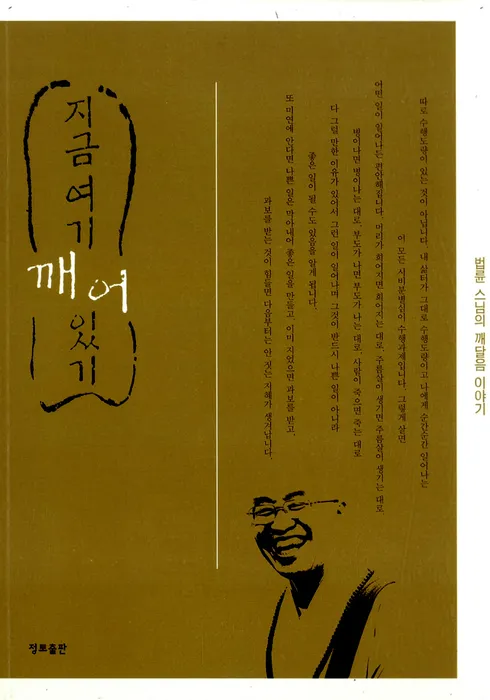 지금 여기
깨어
있기
따로 수행도량이 있는 것이 아닙니다. 내 삶터가 그대로 수행도량이고 나에게 순간순간 일어나는
이 모든 시비분별심이 수행과제입니다. 그렇게 살면
어떤 일이 일어나든 편안해집니다. 머리가 희어지면 희어지는 대로, 주름살이 생기면 주름살이 생기는 대로,
병이나면 병이나는 대로, 부도가 나면 부도가 나는 대로, 사람이 죽으면 죽는 대로
다 그럴 만한 이유가 있어서 그런 일이 일어나며 그것이 반드시 나쁜 일이 아니라
좋은 일이 될 수도 있음을 알게 됩니다.
또 미연에 안다면 나쁜 일은 막아내어 좋은 일을 만들고, 이미 지었으면 과보를 받고,
과보를 받는 것이 힘들면 다음부터는 안 짓는 지혜가 생겨납니다.
법륜 스님의 깨달음 이야기
정토출판